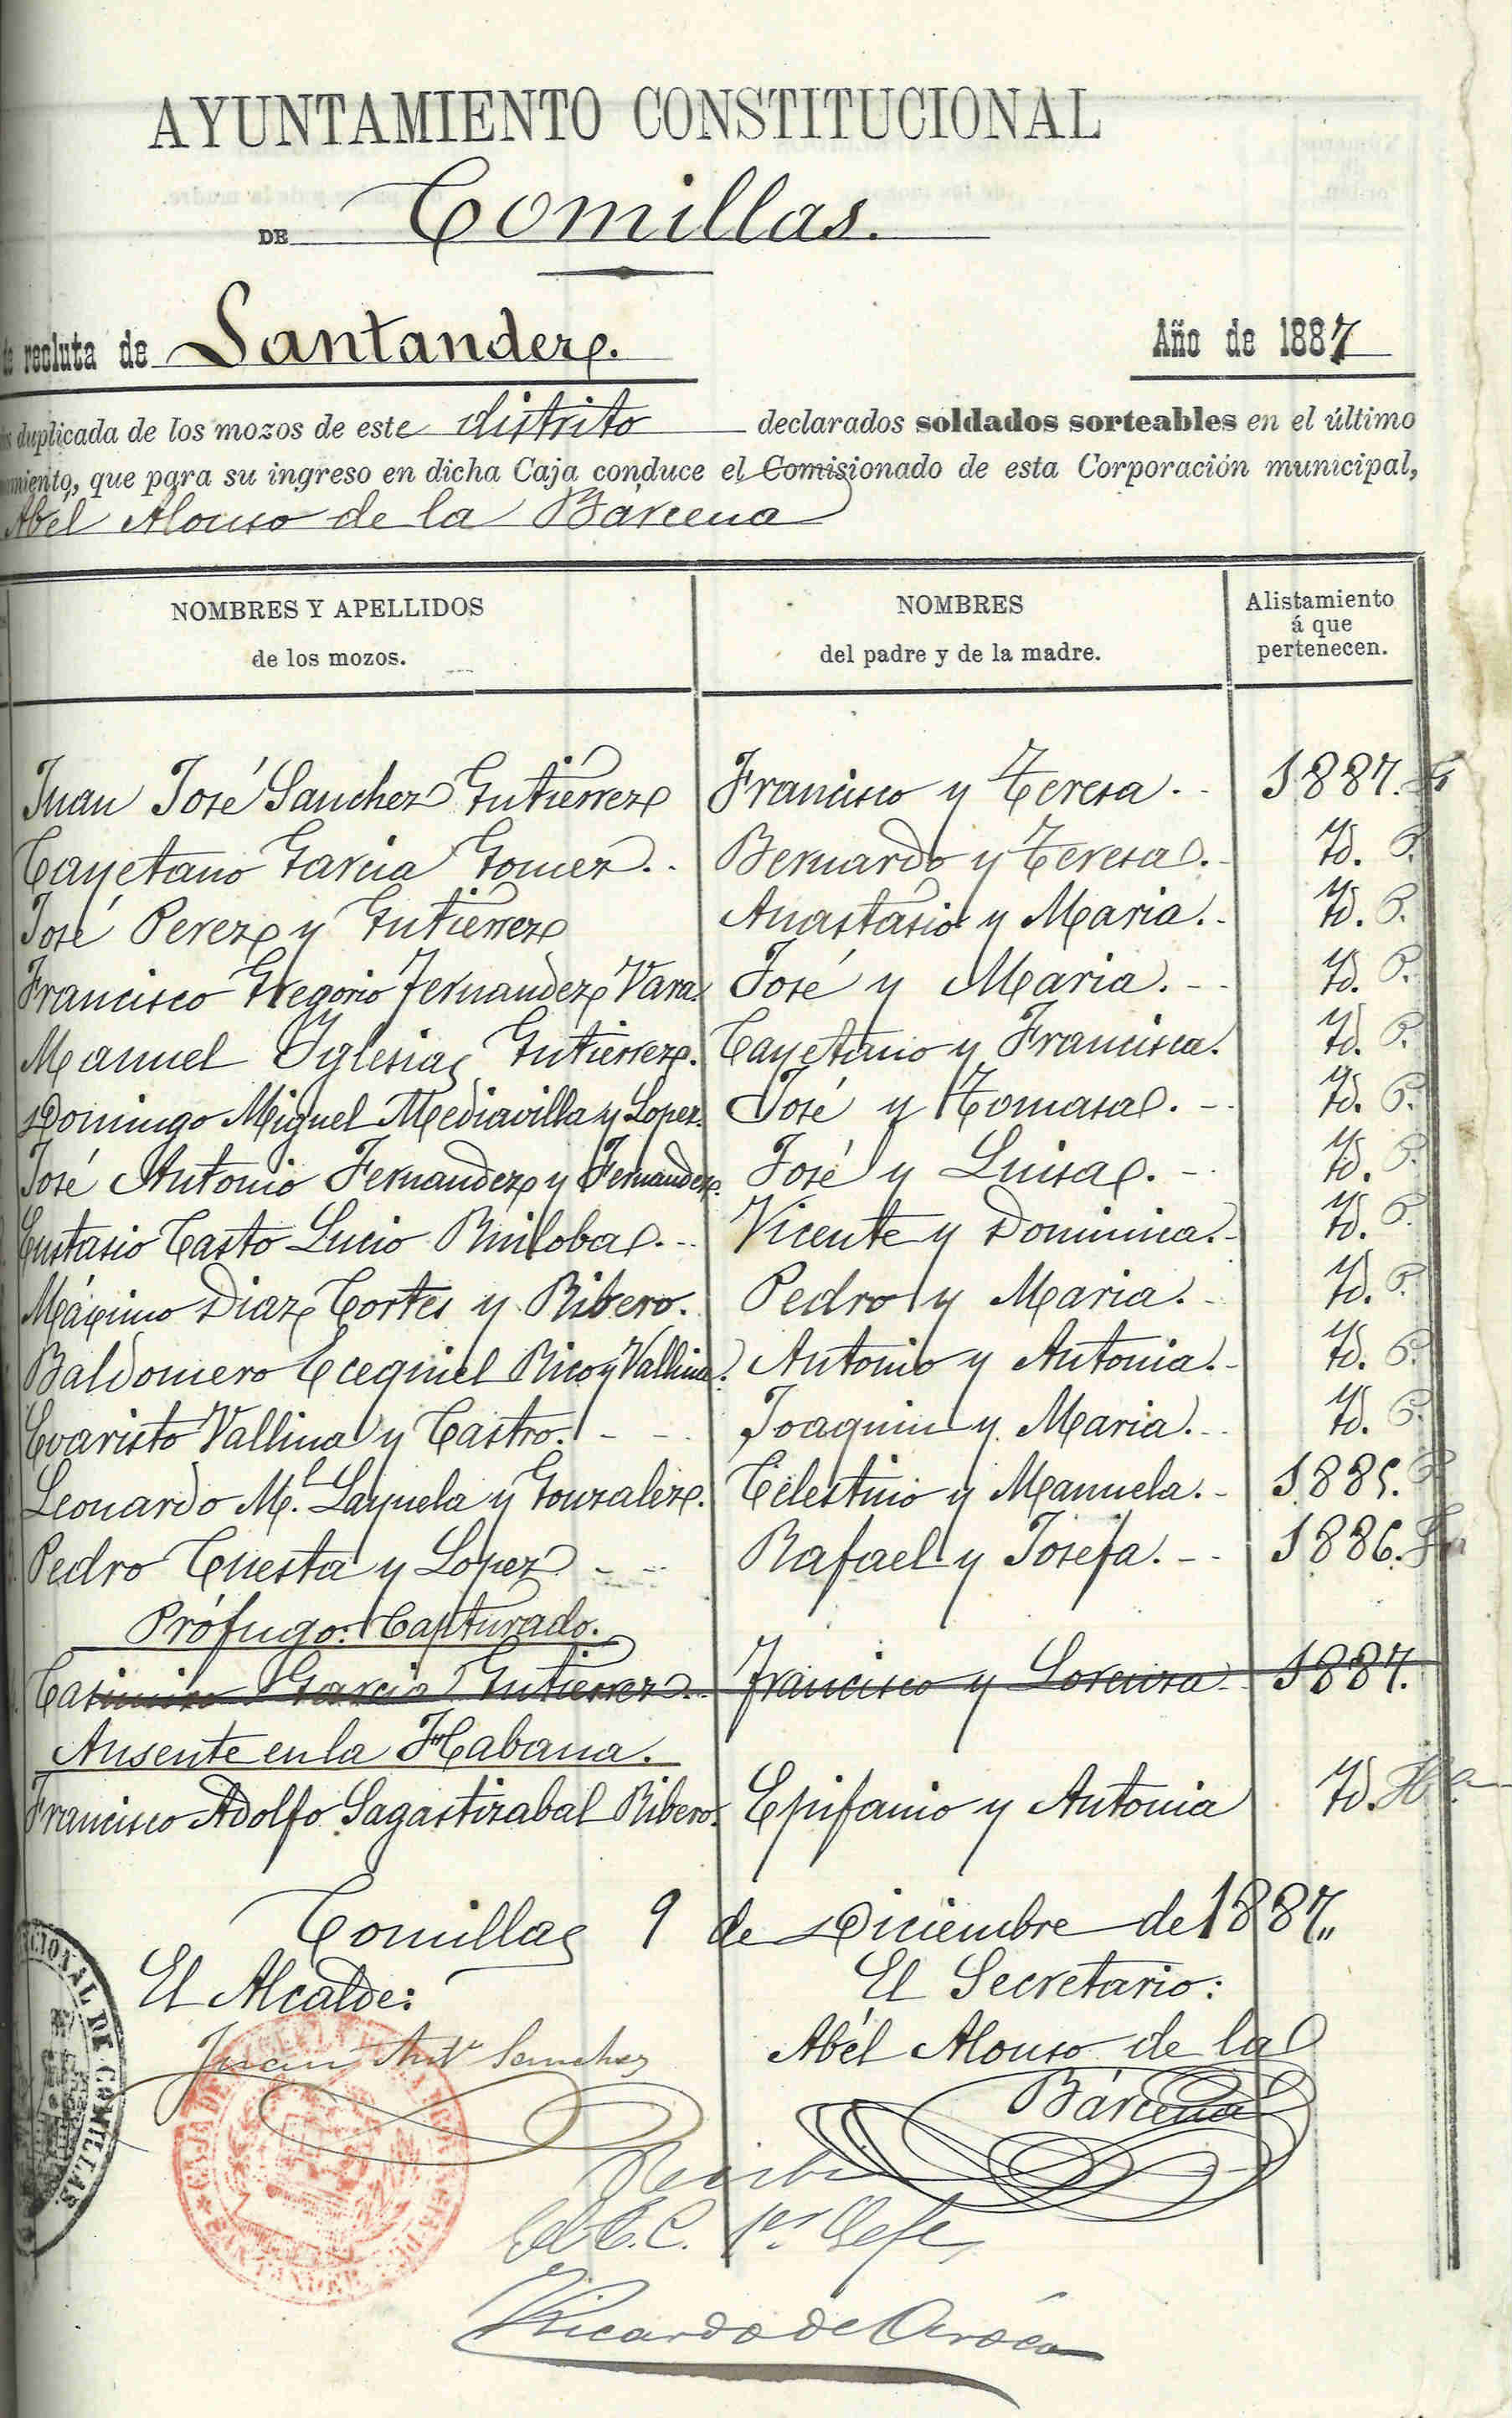 AYUNTAMIENTO CONSTITUCIONAL
DE Comillas.
de recluta de Santander. Año de 1887
duplicada de los mozos de este distrito declarados soldados sorteables en el último
que para su ingreso en dicha Caja conduce el Comisionado de esta Corporación municipal,
Abel Alonso de la Bárcena
NOMBRES Y APELLIDOS de los mozos. NOMBRES del padre y de la madre. Alistamiento á que pertenecen.
Juan José Sanchez Gutierrez Francisco y Teresa. 1887.
Cayetano Garcia Gomez. Bernardo y Teresa. Yd. P.
José Perez y Gutierrez Anastasio y Maria. Yd. P.
Francisco Gregorio Fernandez Vara. José y Maria. Yd. P.
Manuel Yglesias Gutierrez. Cayetano y Francisca. Yd. P.
Domingo Miguel Mediavilla y Lopez. José y Tomasa. Yd. P.
José Antonio Fernandez y Fernandez. José y Luisa. Yd. P.
Eustasio Casto Lucio Ruiloba. Vicente y Dominica. Yd. P.
Máximo Diaz Cortes y Ribero. Pedro y Maria. Yd. P.
Baldomero Ecequiel Rico y Vallina. Antonio y Antonia. Yd. P.
Evaristo Vallina y Castro. Joaquin y Maria. Yd. P.
Leonardo M.l Layuela y Gonzalez. Celestino y Manuela. 1885. P.
Pedro Cuesta y Lopez Rafael y Josefa. 1886.
Prófugo: Capturado.
Casimiro Garcia Gutierrez. Francisco y Lorenza 1887.
Ausente en la Habana.
Francisco Adolfo Sagastizabal Ribero. Epifanio y Antonia Yd. Ha
Comillas 9 de Diciembre de 1887.,
El Alcalde: El Secretario:
Juan Ant.o Sanchez Abél Alonso de la
Bárcena
CIONAL DE COMILLAS.
CAJA DE
SANTANDER
Recibí
El T. C. 1er Gefe,
Ricardo de